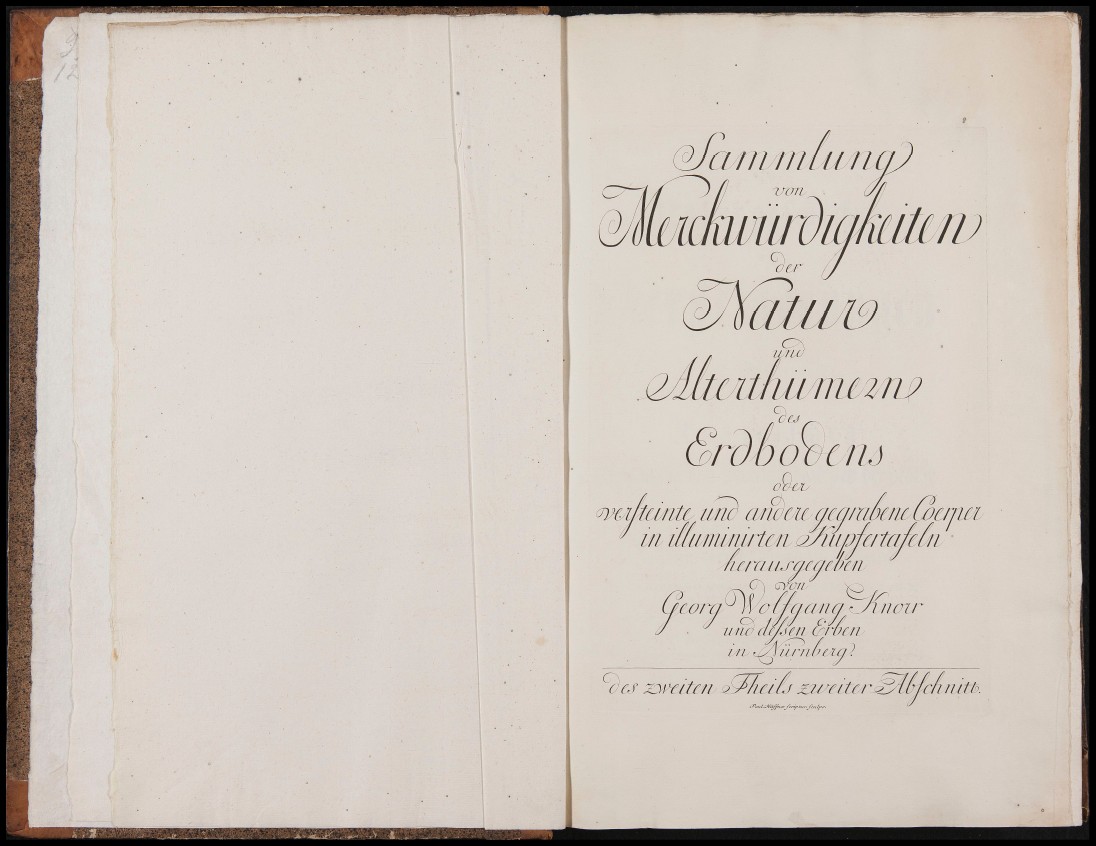 9
12
Sammlung
von
Merckwürdigkeiten
der
Natur
und
Alterthümern
des
Erdbodens
oder
versteinte und andere gegrabene Coerper
in illuminirten Kupfertafeln
herausgegeben
von
Georg Wolfgang Knorr
und dessen Erben
in Nürnberg.
des zweiten Theils zweiter Abschnitt.
Paul Küffner scripsit sculps.